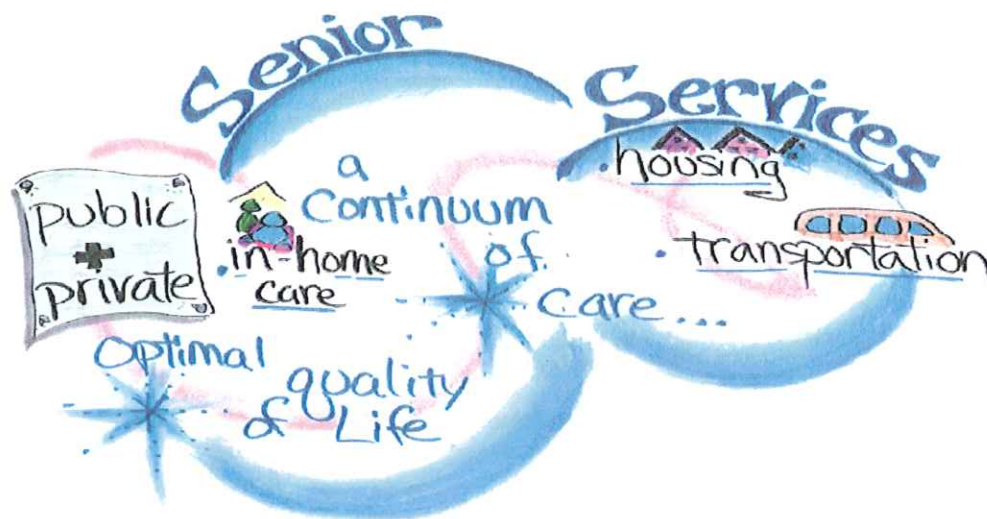 Senior Services
public
+
private
• in-home
care
a
Continuum
of
care...
• housing
• transportation
Optimal
quality
of Life